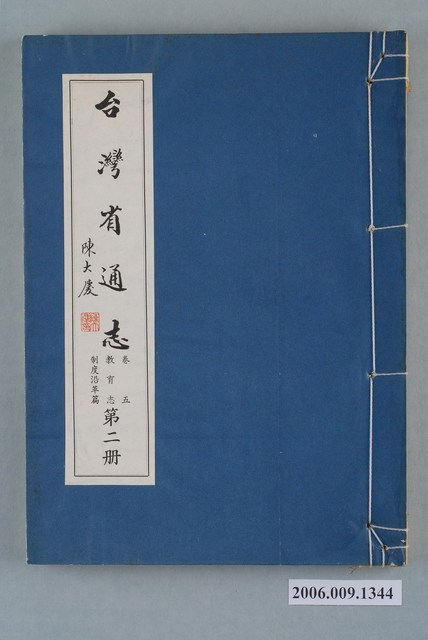 台灣省通志
陳大慶
卷五
教育志
制度沿革篇
第二册
2006.009.1344